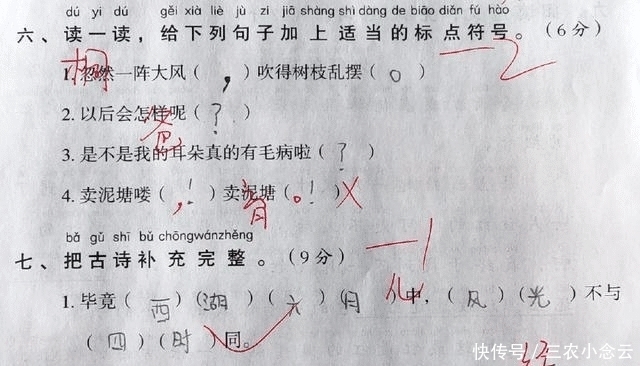 dú yi dú gěi xià liè jù zi jiā shàng shì dàng de biāo diǎn fú hào
六、读一读，给下列句子加上适当的标点符号。（6分）
-2
1. 忽然一阵大风（，）吹得树枝乱摆（。）
2. 以后会怎样呢（？）
3. 是不是我的耳朵真的有毛病啦（？）
4. 卖泥塘喽（！）卖泥塘（！）
bǎ gǔ shī bǔ chōngwánzhěng
七、把古诗补充完整。（9分）
-1
1. 毕竟（西）（湖）（六）（月）中，（风）（光）不与
（四）（时）同。
快传号/三农小念云